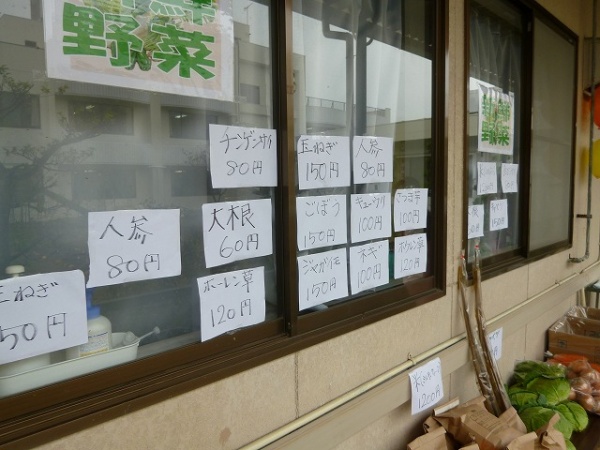 野菜
チンゲンサイ
80円
玉ねぎ
150円
人参
80円
人参
80円
大根
60円
ごぼう
150円
キューウリ
100円
さつま芋
100円
玉ねぎ
50円
ホーレン草
120円
ジャガイモ
150円
ネギ
100円
ホウレン草
120円
野菜
1200円